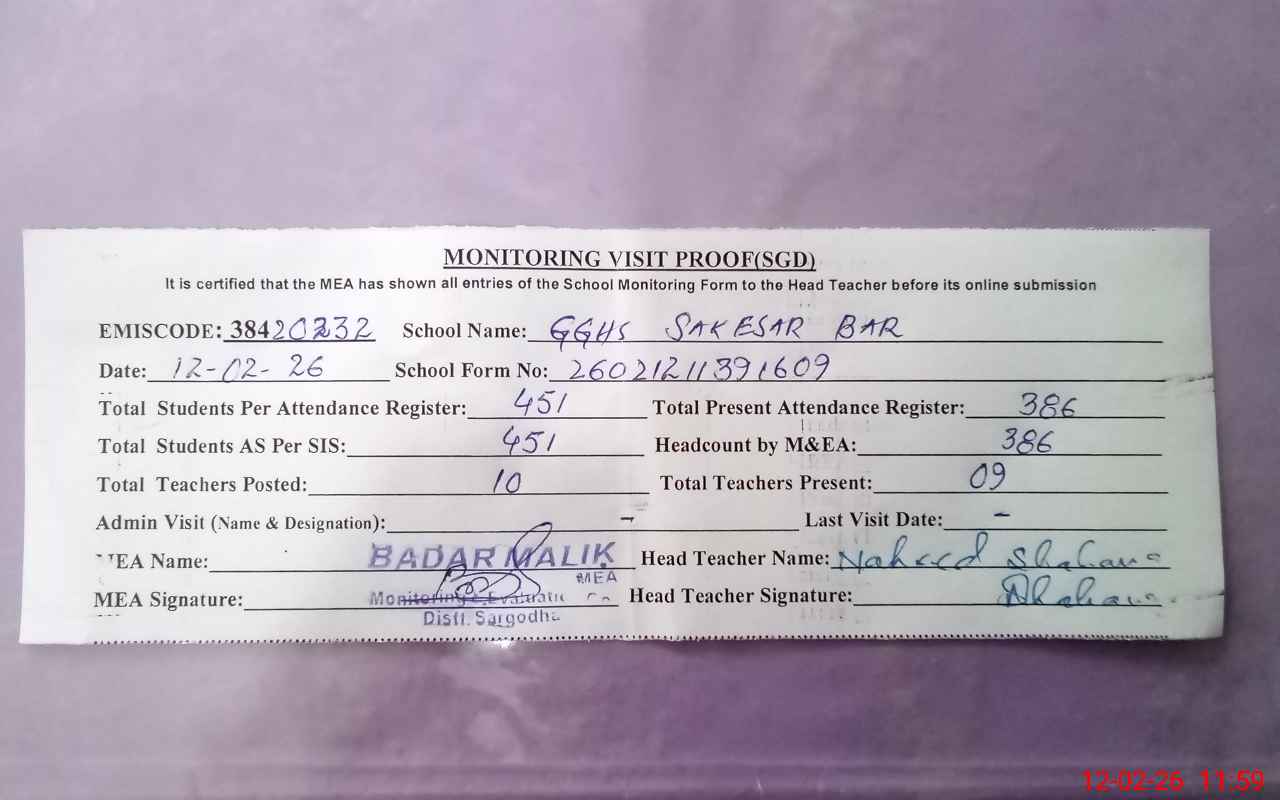 MONITORING VISIT PROOF(SGD)
It is certified that the MEA has shown all entries of the School Monitoring Form to the Head Teacher before its online submission
EMISCODE: 38420232 School Name: GGHS SAKESAR BAR
Date: 12-02-26 School Form No: 26021211391609
Total Students Per Attendance Register: 451 Total Present Attendance Register: 386
Total Students AS Per SIS: 451 Headcount by M&EA: 386
Total Teachers Posted: 10 Total Teachers Present: 09
Admin Visit (Name & Designation): - Last Visit Date: -
MEA Name: BADAR MALIK Head Teacher Name: Naheed Shaheen
MEA
MEA Signature: Monitoring & Head Teacher Signature:
Distt. Sargodha
12-02-26 11:59